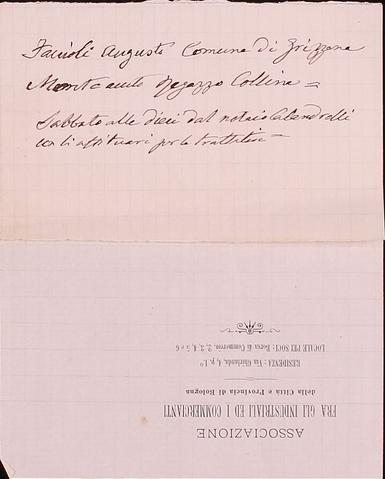 Facioli Augusto Comune di Grizzana
Monte acuto Ragazzo Collina =
Sabbato alle dieci dal notaio Calandrelli
con li affituari per le trattative =
ASSOCIAZIONE
FRA GLI INDUSTRIALI ED I COMMERCIANTI
della Città e Provincia di Bologna
RESIDENZA: Via Ghirlanda, 4, p. 1.°
LOCALE PEI SOCI: Borsa di Commercio, 2, 3, 4, 5 e 6